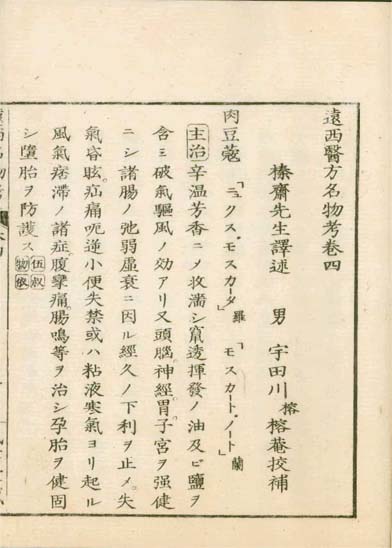 遠西醫方名物考卷四
榛齋先生譯述 男 宇田川榕 榕菴挍補
肉豆蔻 「ニュクス、モスカータ」羅 「モスカート、ノート」蘭
主治 辛温芳香ニメ收濇シ竄透揮發ノ油及ビ鹽ヲ
含ミ破氣驅風ノ効アリ又頭腦神經胃子宮ヲ强健
ニシ諸腸ノ弛弱虛衰ニ因ル經久ノ下利ヲ止メ失
氣昏眩疝痛呃逆小便失禁或ハ粘液寒氣ヨリ起ル
風氣痞滯ノ諸症腹攣痛腸鳴等ヲ治シ孕胎ヲ健固
シ墮胎ヲ防護ス
遠西名物考